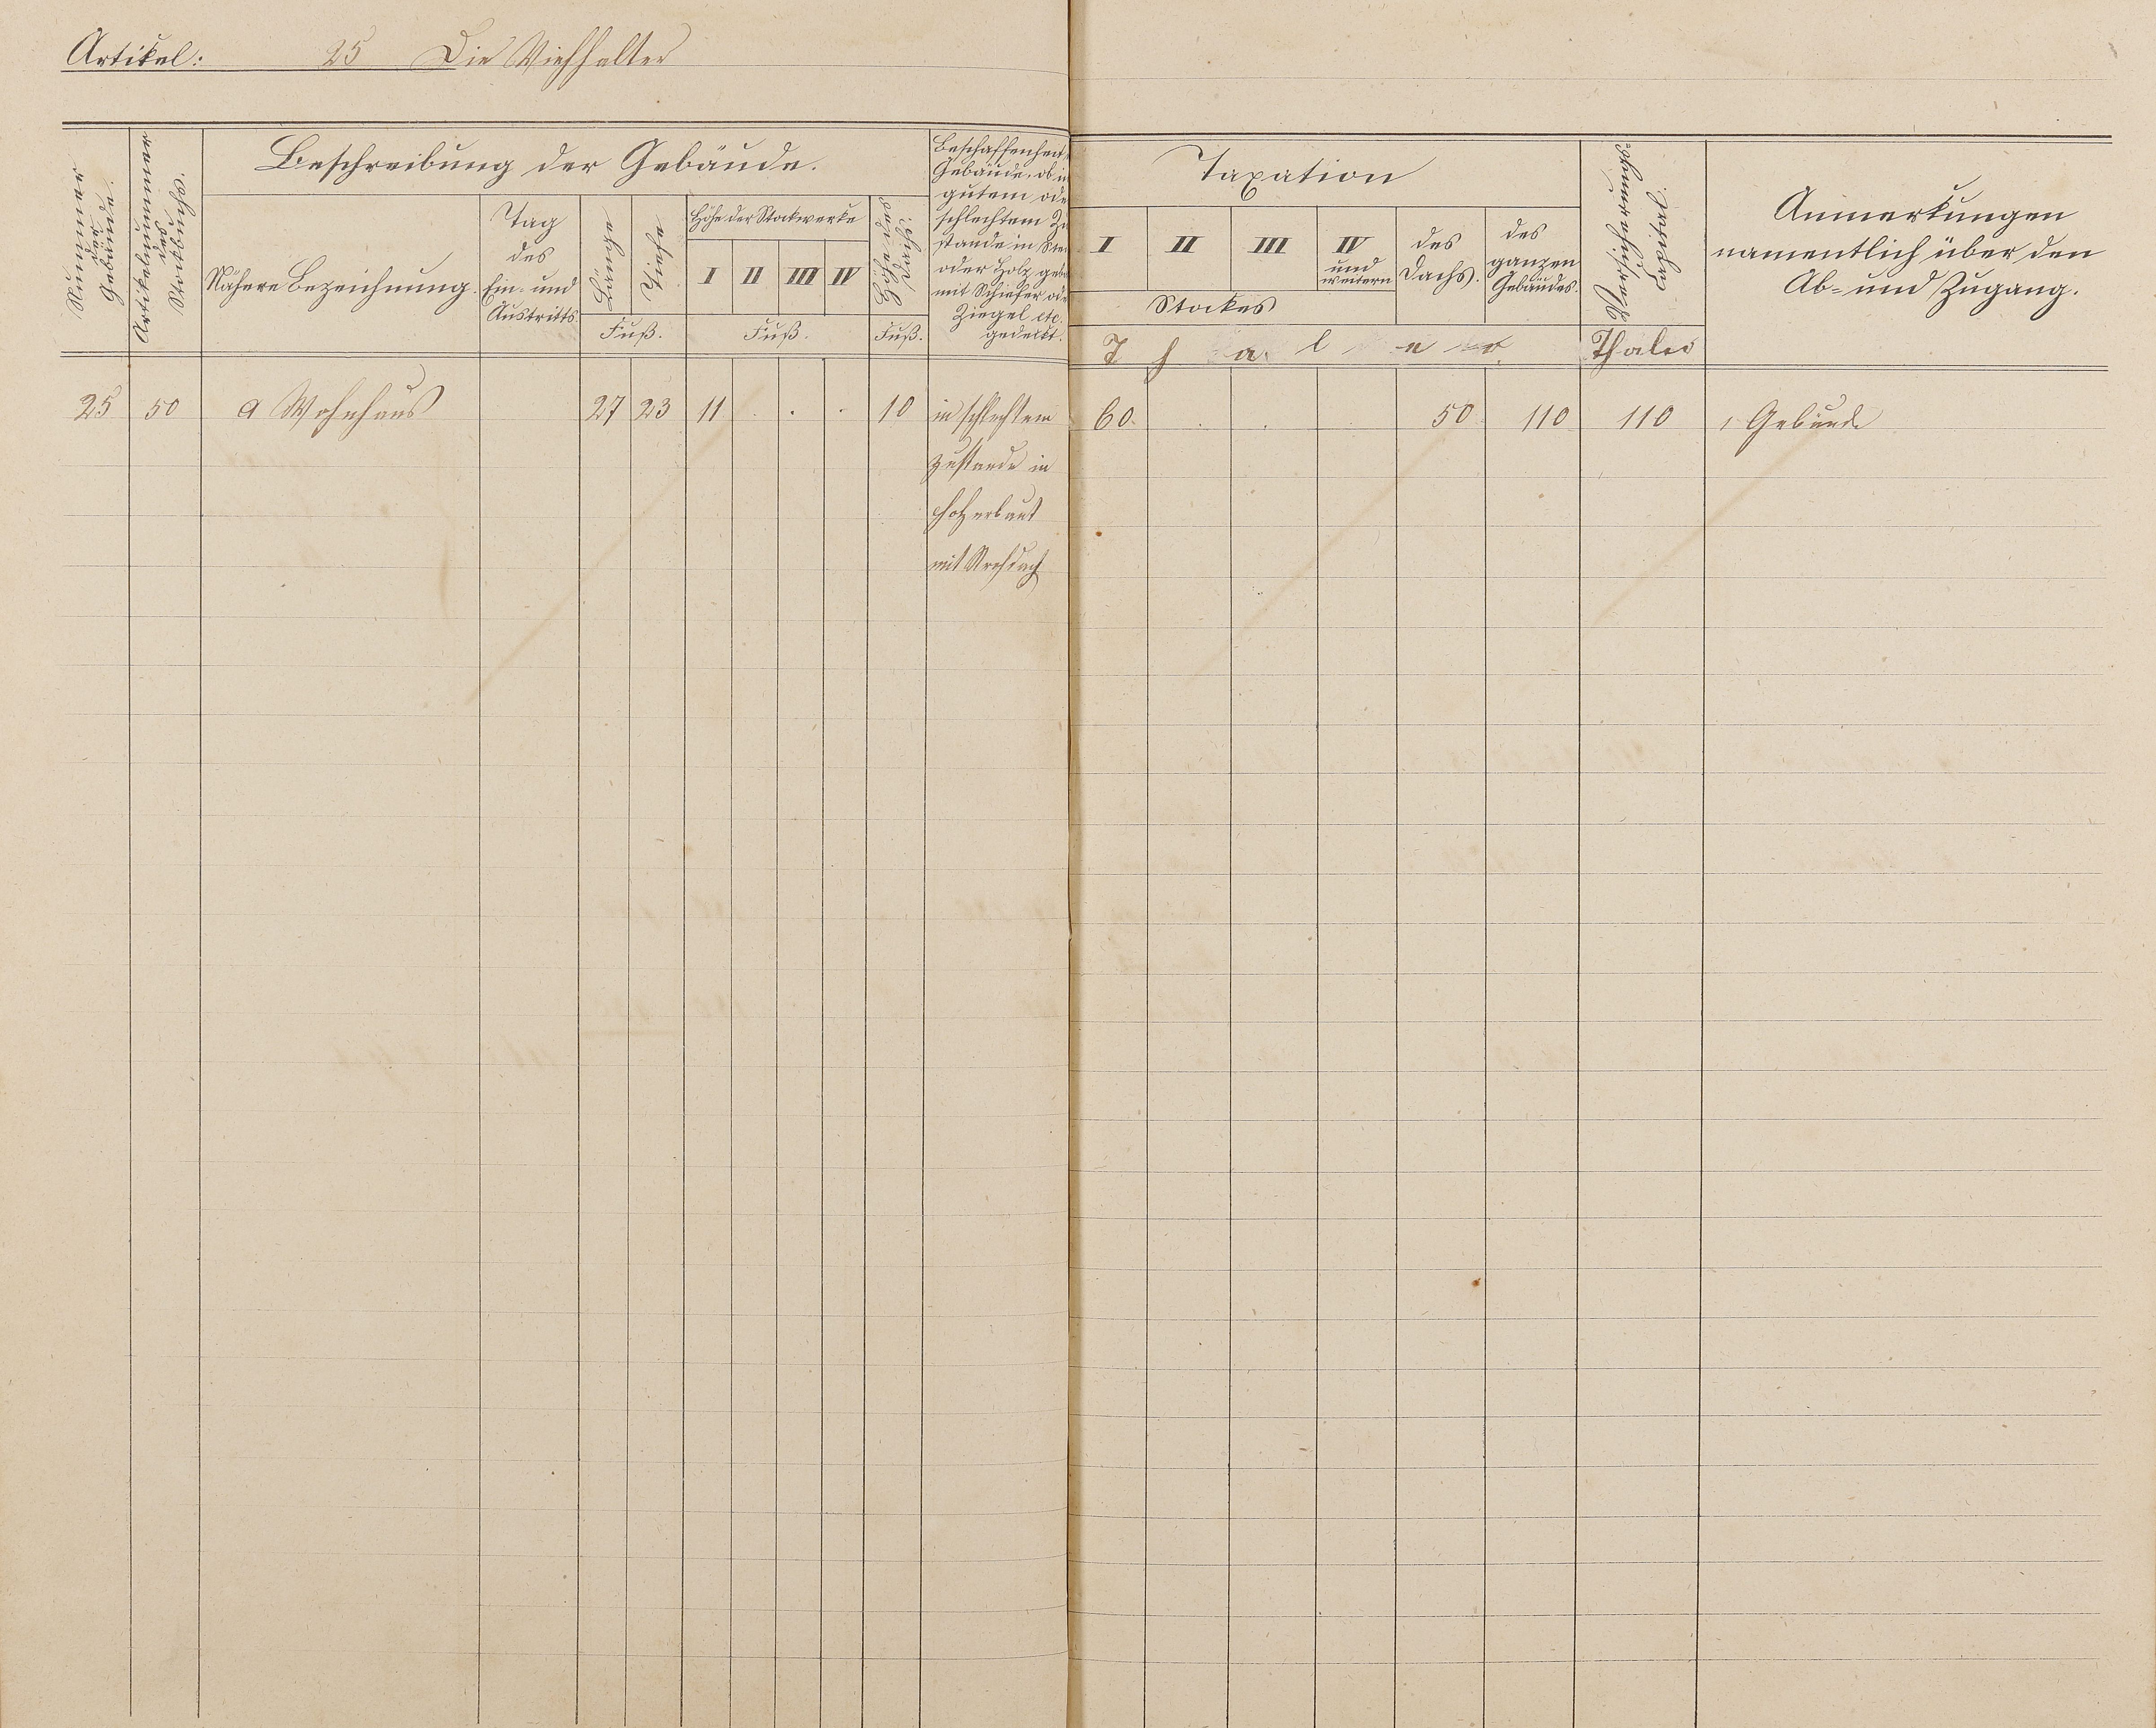 Artikel: 25 Die Viehhalter
Nummer der Gebäude.
Artikelnummer des Stockbuchs.
Beschreibung der Gebäude.
Nähere Bezeichnung.
Tag des Ein- und Austritts.
Länge
Tiefe
Fuß.
Höhe der Stockwerke
I II III IV
Fuß.
Höhe des Dachs.
Fuß.
Beschaffenheit
Gebäude, ob in
gutem ode
schlechtem Zu
stande in Stei
oder Holz geba
mit Schiefer ode
Ziegel etc.
gedeckt.
Taxation
I II III IV und weitern
Stockes
des Dachs.
des ganzen Gebäudes.
Thaler
Versicherungs Capital.
Thaler
Anmerkungen
namentlich über den
Ab- und Zugang.
25 50 a Wohnhaus 27 23 11 . . . 10 in schlechtem 60 . . . 50 110 110 1 Gebäude
Zustande in
Holz erbaut
mit Strohdach